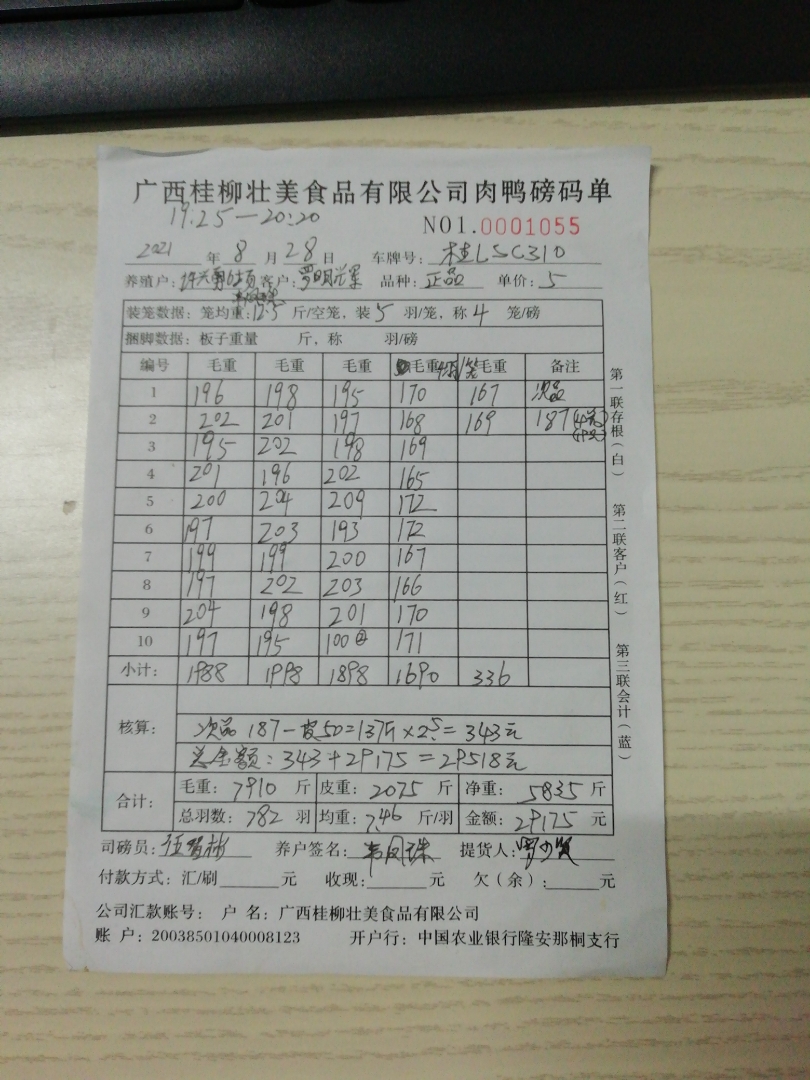 广西桂柳壮美食品有限公司肉鸭磅码单
19:25—20:20
NO1.0001055
2021 年 8 月 28 日 车牌号: 桂L5C310
养殖户: 客户: 品种: 正品 单价: 5
装笼数据: 笼均重: 12.5 斤/空笼, 装 5 羽/笼, 称 4 笼/磅
捆脚数据: 板子重量 斤, 称 羽/磅
编号 毛重 毛重 毛重 毛重 4羽/笼 毛重 备注
1 196 198 195 170 167 次品
2 202 201 197 168 169 187
3 195 202 198 169
4 201 196 202 165
5 200 204 209 172
6 197 203 193 172
7 199 199 200 167
8 197 202 203 166
9 204 198 201 170
10 197 195 100② 171
小计: 1988 1998 1898 1690 336
核算:
次品 187-皮50=137斤×2.5=343元
总金额: 343+29175=29518元
合计: 毛重: 7910 斤 皮重: 2075 斤 净重: 5835 斤
总羽数: 782 羽 均重: 7.46 斤/羽 金额: 29175 元
司磅员: 养户签名: 韦凤珠 提货人:
付款方式: 汇/刷 元 收现: 元 欠(余): 元
公司汇款账号: 户 名: 广西桂柳壮美食品有限公司
账 户: 20038501040008123 开户行: 中国农业银行隆安那桐支行
第一联存根(白)
第二联客户(红)
第三联会计(蓝)